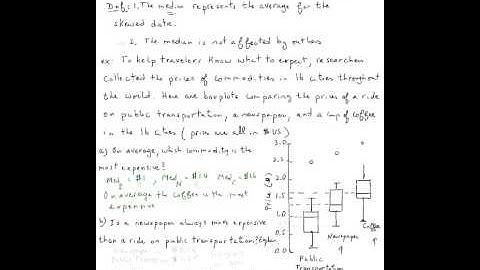 Defs: 1. The median represents the average for the
skewed data.
2. The median is not affected by outliers
ex: To help travelers know what to expect, researchers
collected the prices of commodities in 16 cities throughout
the world. Here are boxplots comparing the prices of a ride
on public transportation, a newspaper, and a cup of coffee
in the 16 cities (prices are all in $US)
a) On average, which commodity is the
most expensive?
Med = $1, Med N = $1.4 Med c = $1.6
On average the coffee is the most
expensive
b) Is a newspaper always more expensive
than a ride on public transportation? Explain
Price ($)
3.0
2.5
2.0
1.5
1.0
0.5
0.0
Public
Transportation
Newspaper
Coffee